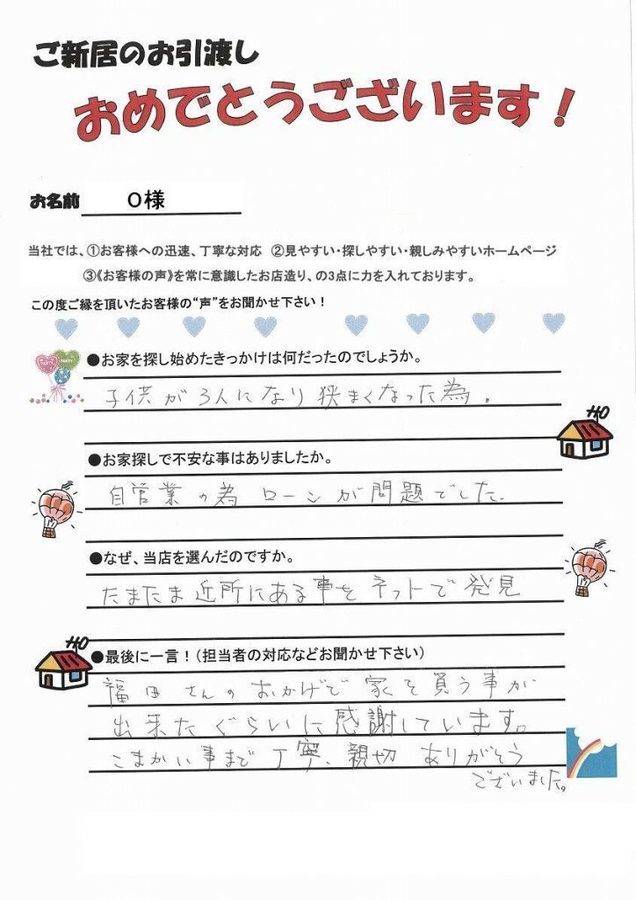 ご新居のお引渡し
おめでとうございます！
お名前 O様
当社では、①お客様への迅速、丁寧な対応 ②見やすい・探しやすい・親しみやすいホームページ
③《お客様の声》を常に意識したお店造り、の3点に力を入れております。
この度ご縁を頂いたお客様の“声”をお聞かせ下さい！
●お家を探し始めたきっかけは何だったのでしょうか。
子供が3人になり狭まくなった為。
●お家探しで不安な事はありましたか。
自営業の為ローンが問題でした。
●なぜ、当店を選んだのですか。
たまたま近所にある事をネットで発見
●最後に一言！（担当者の対応などお聞かせ下さい）
福田さんのおかげで家を買う事が
出来たぐらいに感謝しています。
こまかい事まで丁寧、親切ありがとう
ございました。